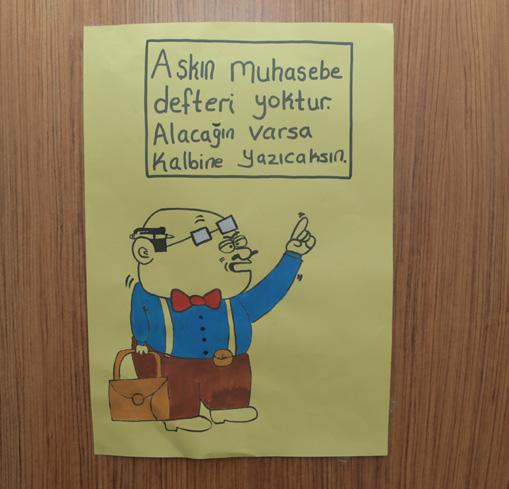 Aşkın Muhasebe
defteri yoktur.
Alacağın varsa
Kalbine Yazıcaksın.